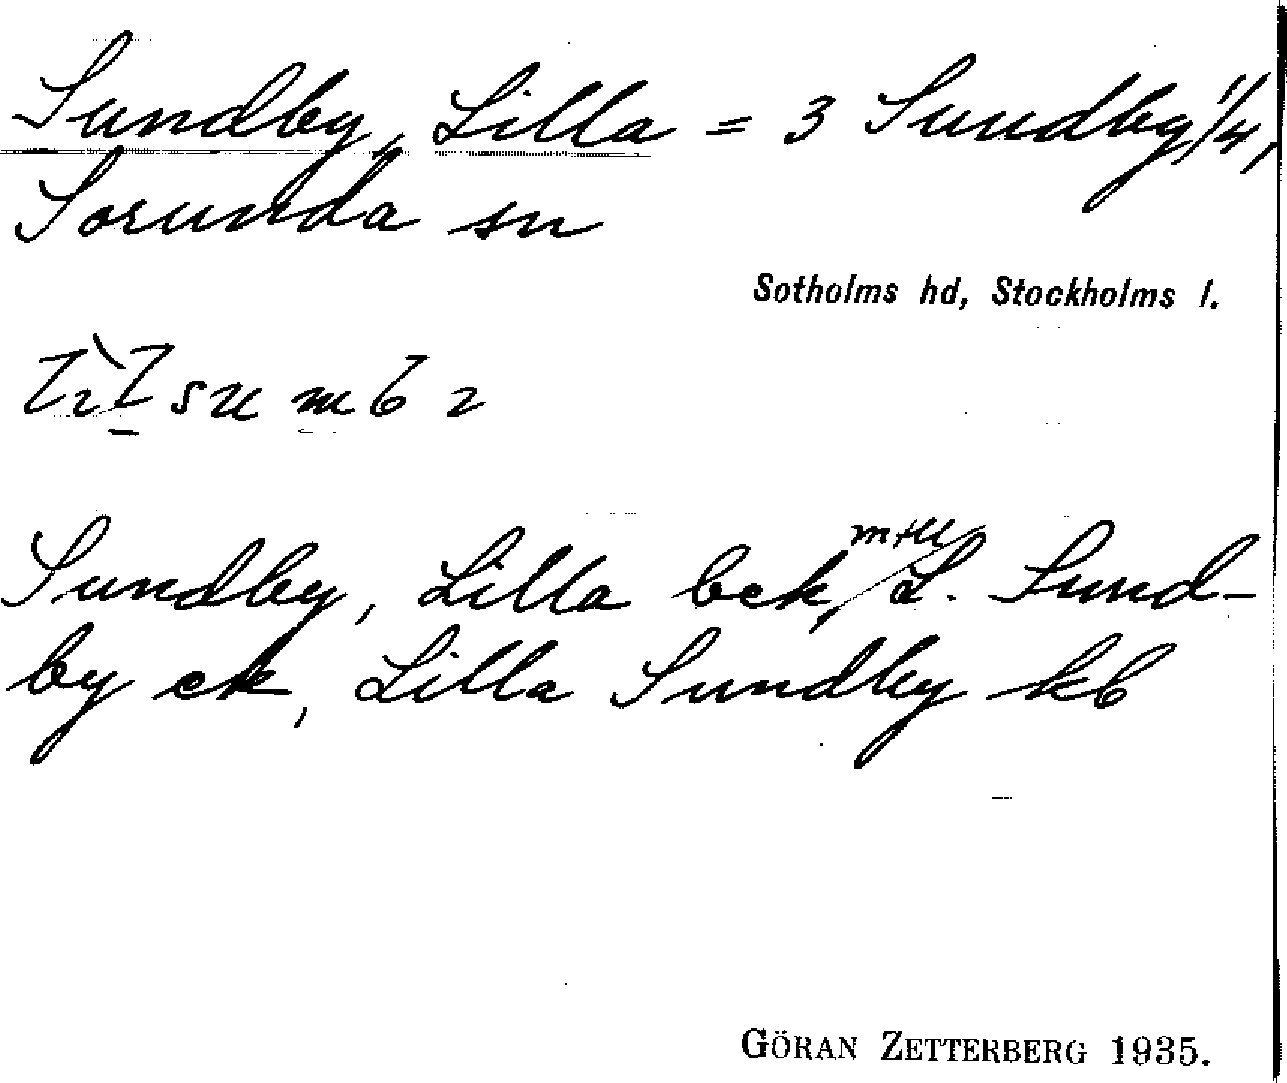 Sundby, Lilla = 3 Sundby 1/4,
Sorunda sn
Sotholms hd, Stockholms l.
m+u
Sundby, Lilla bek, L. Sund-
by ek, Lilla Sundby kb
GÖRAN ZETTERBERG 1935.